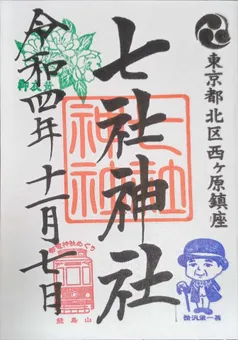 東京都北区西ヶ原鎮座
七社神社
七社
神社
令和四年十一月七日
都電神社めぐり
飛鳥山
渋沢栄一翁